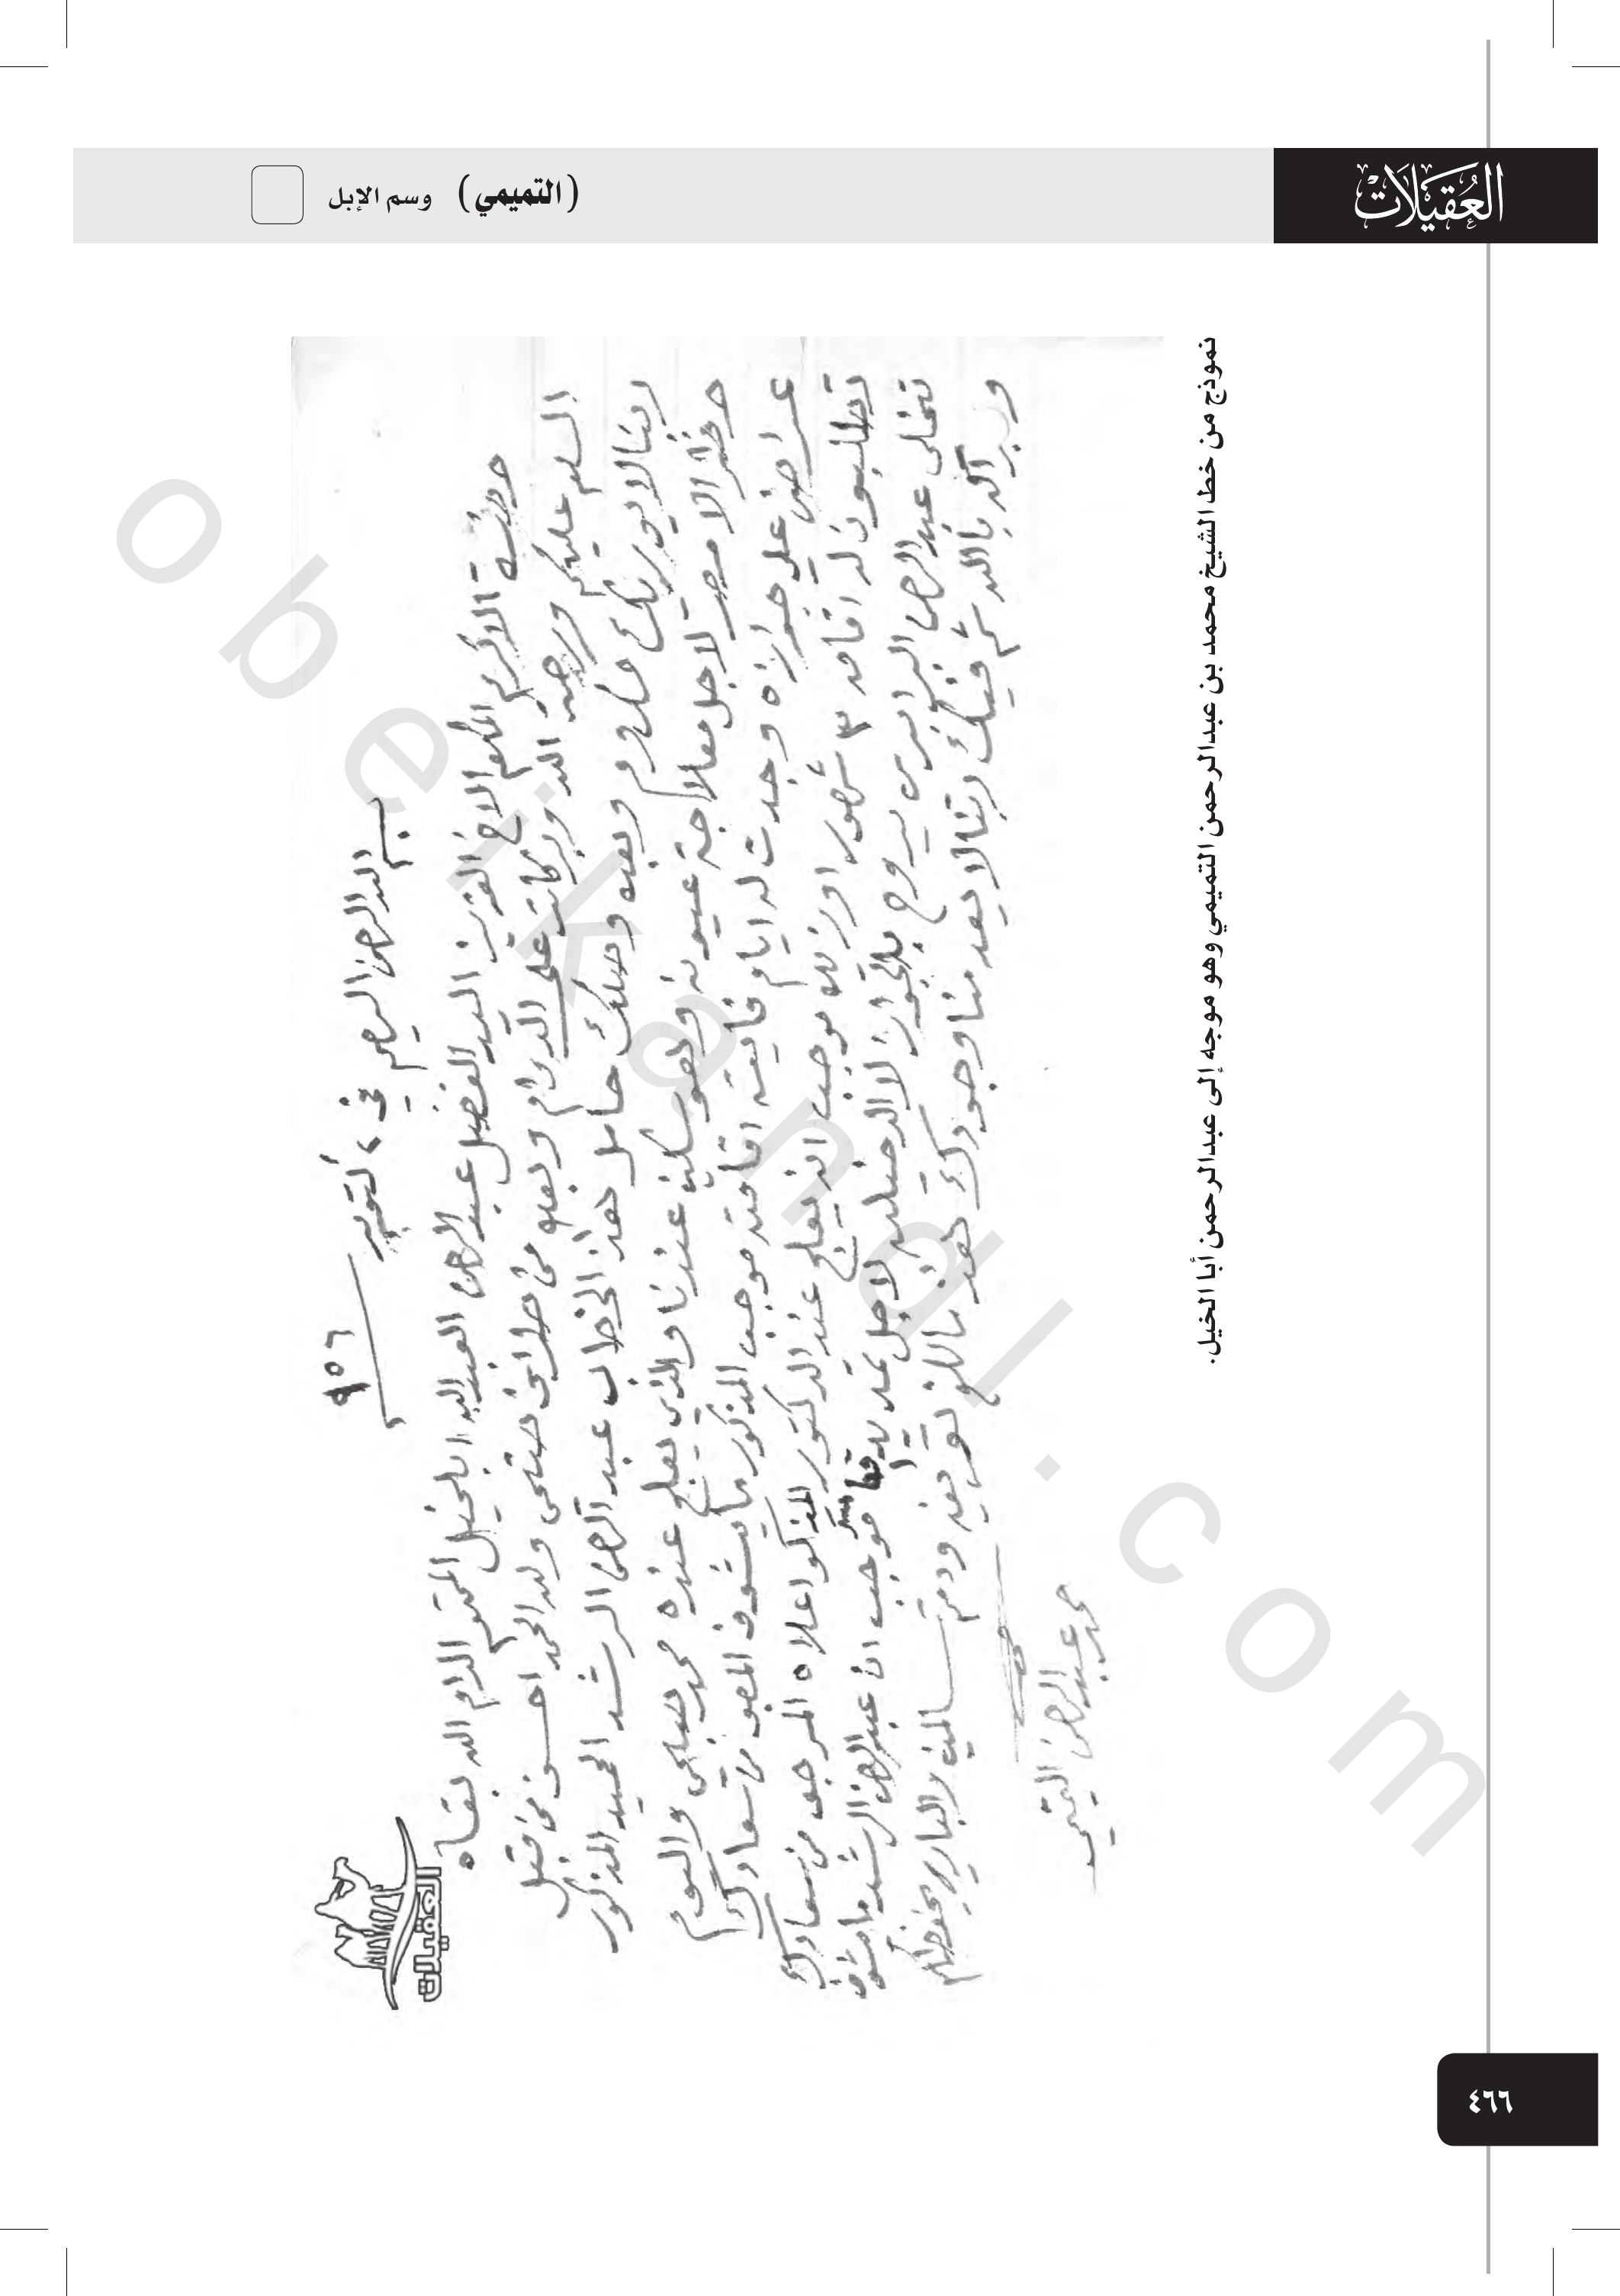 العُقَيْلَات
(التميمي) وسم الإبل
بسم الله الرحمن الرحيم في ٢ اكتوبر ٩٥٦
حضرة الاكرم المكرم الاخ العزيز السيد الفضيل عبد الرحمن العبدالله ابالخيل المحترم الدام الله بقاه
السلم عليكم ورحمة الله وبركاته على الدوام وبعده من طرفي صحتي ولله الحمد احسن من قبل
ربنا لا يوريك مكروم وبعده وصلك حامل هذا الخطاب عبد الرحمن الرشد الحميد المذكور
حضر الا مصر لاجل معلاجة عيونه وطهور سكنه عندنا والذي يعلج عنده محمد صبحي واليوم
عراض على جوازه وجدت له ايام فايته اقامته موجب المذكور ما يشوف المصوب من سعادتك
تطلبون له اقامه ٣ شهور اورله موجب انه يعلج عند الدكتور المذكو اعلاه المرجو من سعادتك
تخلي عبد الرحمن البراهيم يروح بالجواز لا الدخليه لاجل تمديد اقا موجب ان عبدالرحمن الرشد ما يشوف
وبرا لك بالله ثم فيك ربنا لا يعد منا وجودك هذا مالزم تعريفه ودمتم سالمين والباري يحفظكم
محمد عبدالرحمن التميمي
العقيلات
نموذج من خط الشيخ محمد بن عبدالرحمن التميمي وهو موجه إلى عبدالرحمن أبا الخيل.
٤٦٦
obeikandl.com